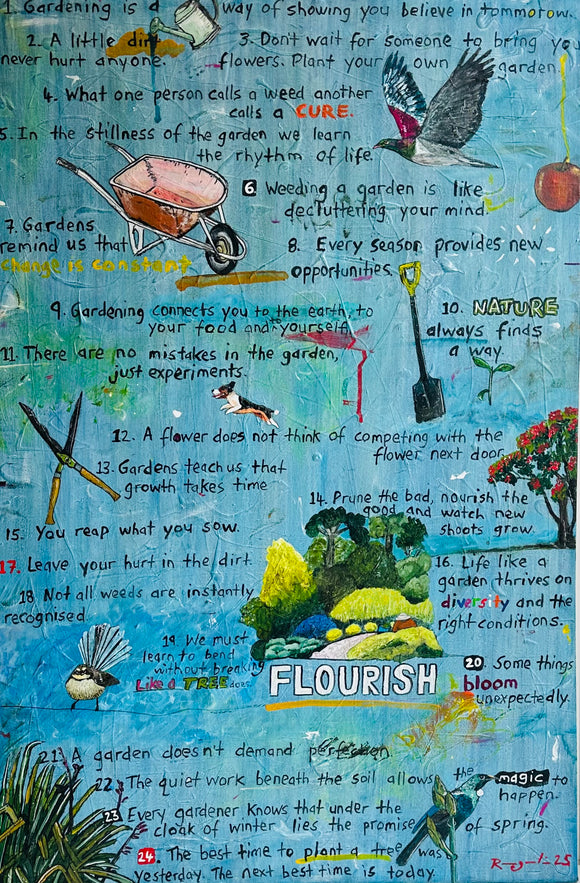 1. Gardening is a way of showing you believe in tommorow.
2. A little dirt
never hurt anyone.
3. Don't wait for someone to bring you
flowers. Plant your own garden.
4. What one person calls a weed another
calls a CURE.
5. In the stillness of the garden we learn
the rhythm of life.
6 Weeding a garden is like
decluttering your mind.
7. Gardens
remind us that
change is constant
8. Every season provides new
opportunities
9. Gardening connects you to the earth, to
your food and yourself
10. NATURE
always finds
a way.
11. There are no mistakes in the garden,
just experiments.
12. A flower does not think of competing with the
flower next door
13. Gardens teach us that
growth takes time
14. Prune the bad, nourish the
good and watch new
shoots grow.
15. You reap what you sow.
16. Life like a
garden thrives on
diversity and the
right conditions.
17. Leave your hurt in the dirt.
18. Not all weeds are instantly
recognised.
19. We must
learn to bend
without breaking
Like a TREE does.
FLOURISH
20 Some things
bloom
unexpectedly.
21. A garden doesn't demand perfection
22. The quiet work beneath the soil allows the magic to
happen.
23 Every gardener knows that under the
cloak of winter lies the promise of spring.
24. The best time to plant a tree was
yesterday. The next best time is today.